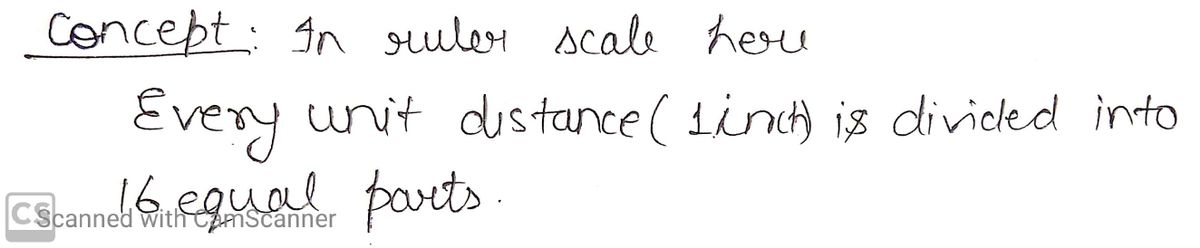 Concept: In ruler scale here
Every unit distance (1 inch) is divided into
16 equal parts.
CS Scanned with CamScanner